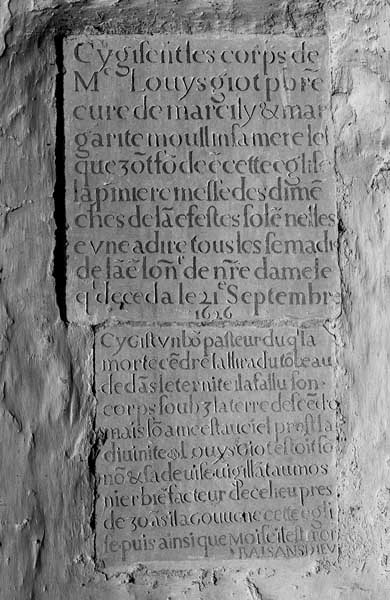 Cy giſent les corps de
Mᵉ Louys giot pb̄re
cure de marcily & mar
garite moullin ſa mere leſ
que z ōt fō de ē cette egliſe
la p iniere meſſe des dimē
ches de lā e feſtes ſolē nelles
e vne a dire tous les ſemadis
de lāē lōn͂ de nr̄e dame le
qˡ deceda le 21ᵉ Septembre
1626
Cy giſt vn bō paſteur duq̄ la
mort e cēdre ſallira du tōbeau
de dās leternite il a fallu ſon
corps ſoubz la terre deſcēdre
mais ſō ame eſt au ciel pres la
diuinite Louys giot eſtoit ſō
nō & ſa deuiſe vigillāt aumos
nier biē facteur de ce lieu pres
de 30 ās il a gouuerne cette egli
ſe puis ainſi que Moiſe il eſt mort
BAISANS DIEV